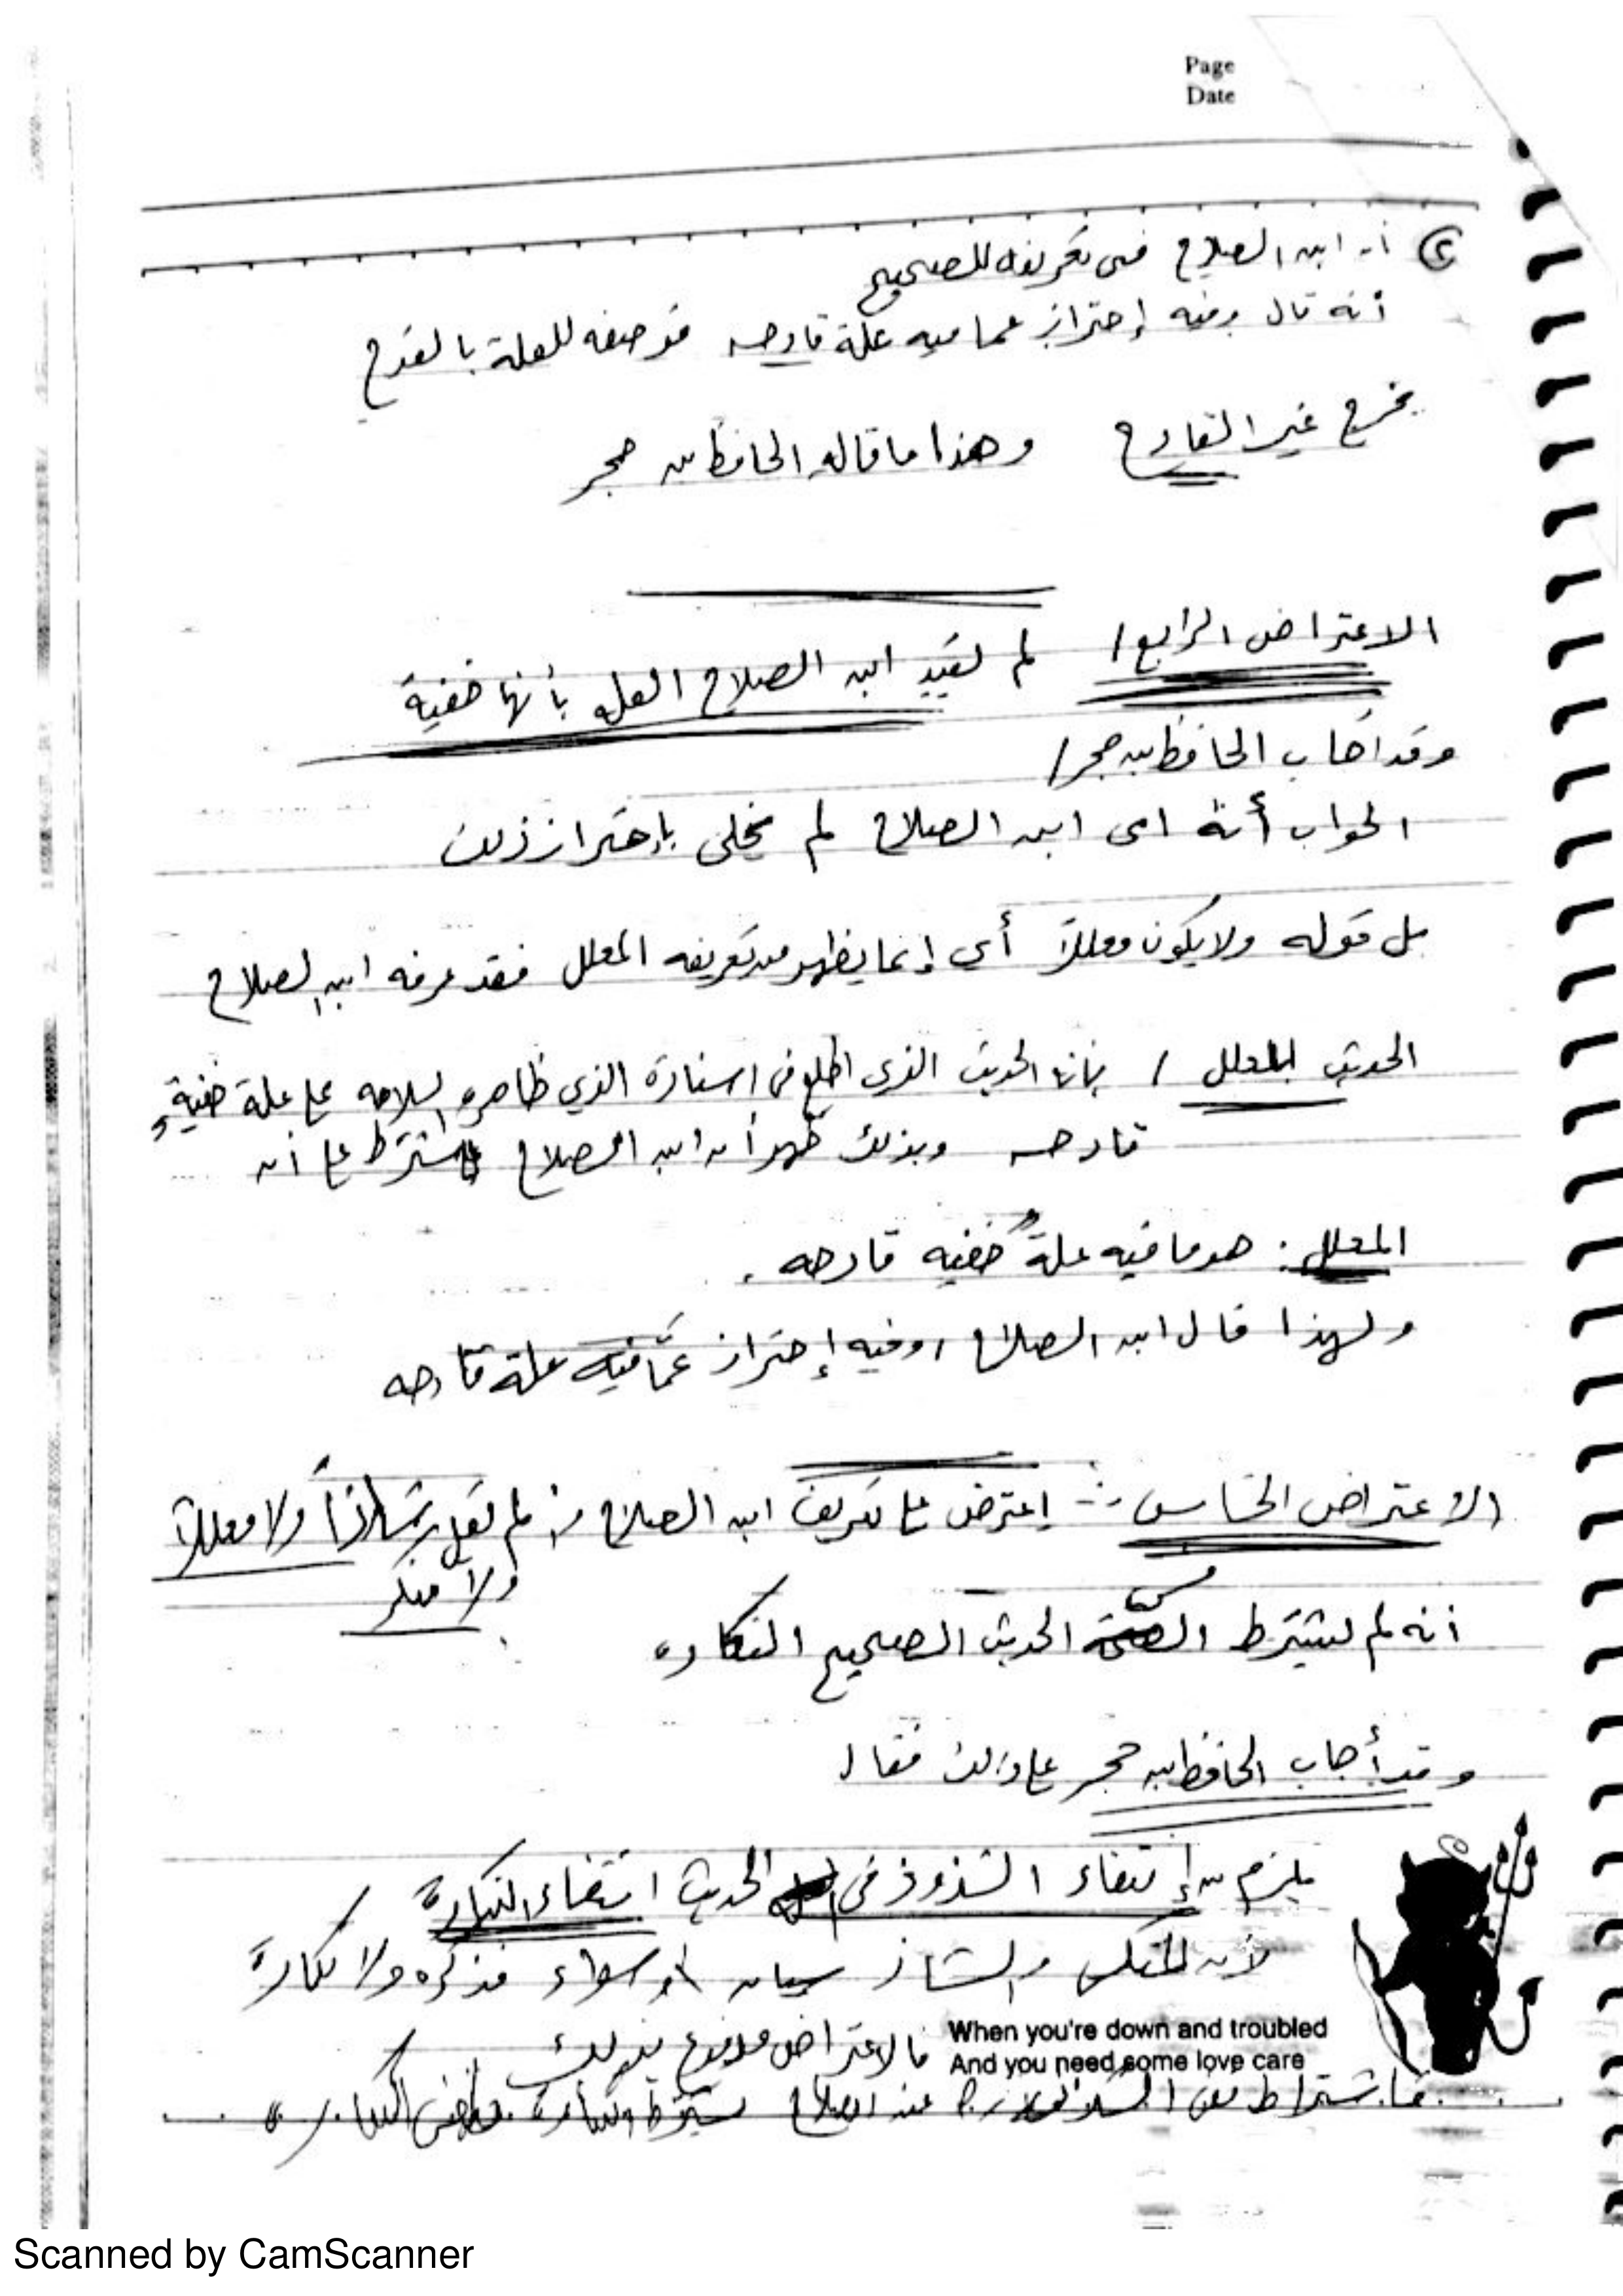 Page
Date
② أن ابن الصلاح في تعريفه للصحيح
أنه قال وفيه إحتراز عما فيه علة قادحه فوصفه للعلة بالقدح
يخرج غير القادح وهذا ما قاله الحافظ بن حجر
الاعتراض الرابع / لم يقيد ابن الصلاح العله بأنها خفية
وقد اجاب الحافظ بن حجر /
الجواب أنه اى ابن الصلاح لم يخلى بإحتراز ذلك
بل قوله ولا يكون معللاً أي إنما يظهر من تعريفه المعلل فقد عرفه ابن الصلاح
الحديث المعلل / بأنه الحديث الذى اطلع في اسناده الذي ظاهره السلامه على علة خفية
قادحه وبذلك ظهر أن ابن الصلاح اشترط على أن
المعلل : هو ما فيه علة خفيه قادحه .
ولهذا قال ابن الصلاح ، وفيه إحتراز عمَّا فيه علة قادحه
الاعتراض الخامس :- إعترض على تعريف ابن الصلاح لم يقل شاذاً ولا معللاً
ولا منكر
انه لم يشترط الحديث الصحيح النكاره
وقد أجاب الحافظ بن حجر على ذالك فقال
يلزم من إنتفاء الشذوذ فى الحديث انتفاء النكارة
لأن المنكر والشاذ سيان او سواء فذكره ولا نكارة
فالاعتراض مدفوع بذلك
When you're down and troubled
And you need some love care
فاشتراط الصلاح
Scanned by CamScanner